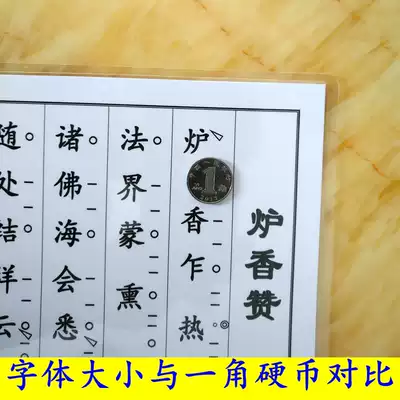 炉香赞
炉香乍热
法界蒙熏
诸佛海会悉
随处结祥云
字体大小与一角硬币对比